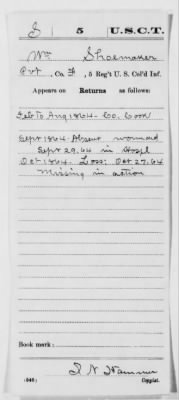 S | 5 | U.S.C.T.
Wm Shoemaker
Pvt, Co. F, 5 Reg't U. S. Col'd Inf.
Appears on
Returns as follows:
Feb To Aug 1864 - Co. Cook
Sept 1864 Absent wounded
Sept 29.64 in Hospl
Oct 1864. Loss: Oct 27.64
Missing in action
Book mark:
(546)
Copyist.